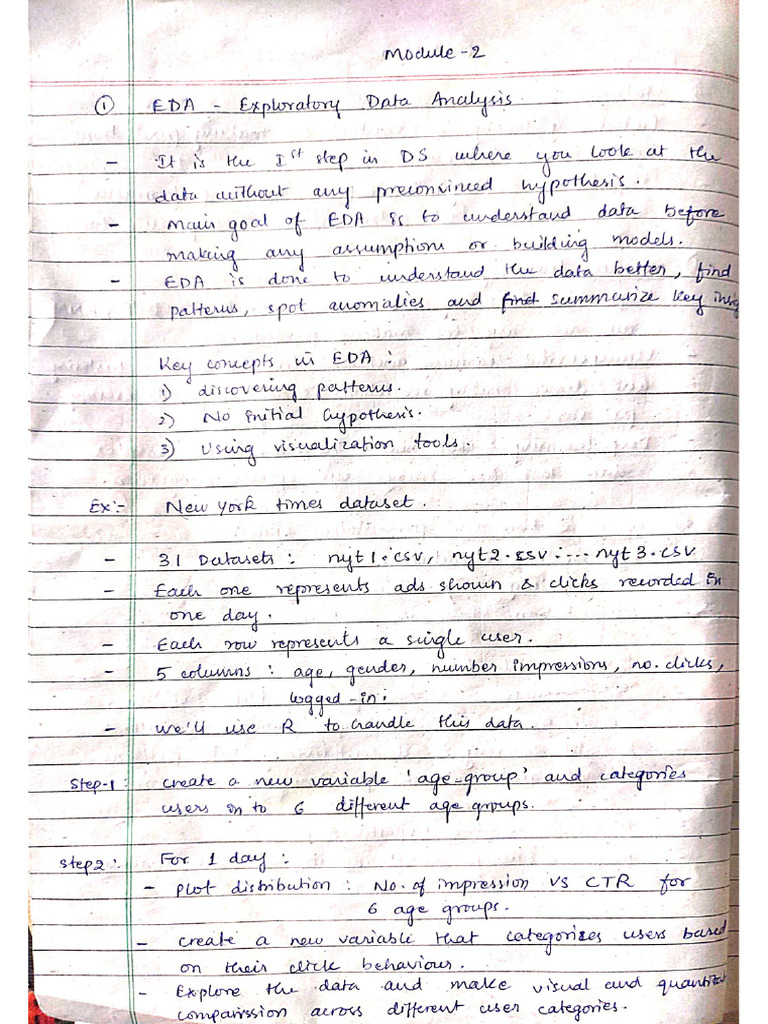 Module - 2
① EDA - Exploratory Data Analysis.
- It is the Ist step in DS where you look at the
data without any preconvinced hypothesis.
- main goal of EDA is to understand data before
making any assumptions or building models.
- EDA is done to understand the data better, find
patterns, spot anomalies and find summarize key insig
Key concepts in EDA :
1) discovering patterns.
2) No initial hypothesis.
3) Using visualization tools.
Ex:- New York times dataset.
- 31 Datasets : nyt1.csv, nyt2.csv .... nyt3.csv
- Each one represents ads shown & clicks recorded in
one day.
- Each row represents a single user.
- 5 columns : age, gender, number impressions, no. clicks,
logged-in.
- we'll use R to handle this data.
Step-1: create a new variable 'age-group' and categories
users in to 6 different age groups.
Step2: For 1 day :
- Plot distribution : No. of impression vs CTR for
6 age groups.
- create a new variable that categorizes users based
on their click behaviour.
- Explore the data and make visual and quantit
comparission across different user categories.